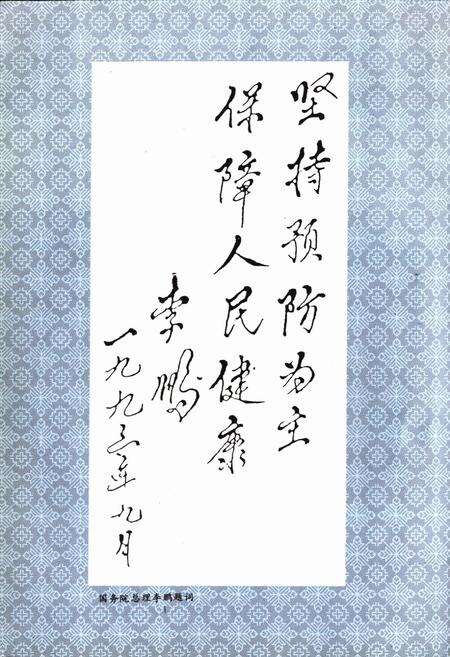 坚持预防为主
保障人民健康
李鹏
一九九三年九月
国务院总理李鹏题词